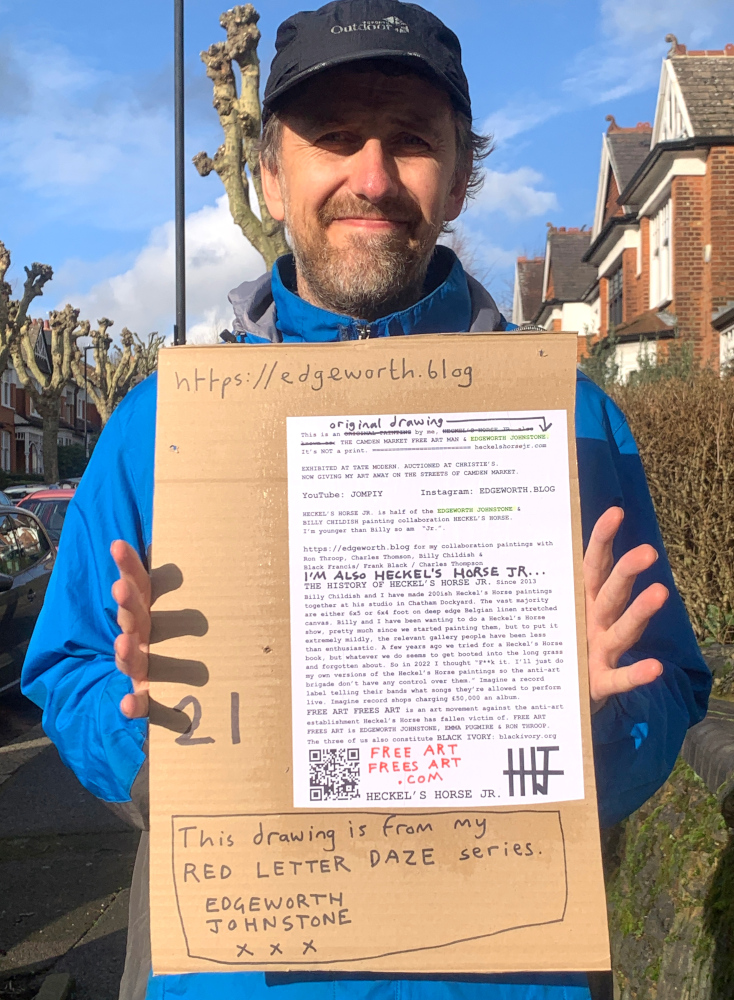 Outdoor
https://edgeworth.blog
original drawing
This is an ORIGINAL PAINTING by me, HECKEL'S HORSE JR. also
known as: THE CAMDEN MARKET FREE ART MAN & EDGEWORTH JOHNSTONE.
It's NOT a print. ======================== heckelshorsejr.com
EXHIBITED AT TATE MODERN. AUCTIONED AT CHRISTIE'S.
NOW GIVING MY ART AWAY ON THE STREETS OF CAMDEN MARKET.
YouTube: JOMPIY Instagram: EDGEWORTH.BLOG
HECKEL'S HORSE JR. is half of the EDGEWORTH JOHNSTONE &
BILLY CHILDISH painting collaboration HECKEL'S HORSE.
I'm younger than Billy so am "Jr.".
https://edgeworth.blog for my collaboration paintings with
Ron Throop, Charles Thomson, Billy Childish &
Black Francis/ Frank Black / Charles Thompson
I'M ALSO HECKEL'S HORSE JR...
THE HISTORY OF HECKEL'S HORSE JR. Since 2013
Billy Childish and I have made 200ish Heckel's Horse paintings
together at his studio in Chatham Dockyard. The vast majority
are either 6x5 or 6x4 foot on deep edge Belgian linen stretched
canvas. Billy and I have been wanting to do a Heckel's Horse
show, pretty much since we started painting them, but to put it
extremely mildly, the relevant gallery people have been less
than enthusiastic. A few years ago we tried for a Heckel's Horse
book, but whatever we do seems to get booted into the long grass
and forgotten about. So in 2022 I thought "F**k it. I'll just do
my own versions of the Heckel's Horse paintings so the anti-art
brigade don't have any control over them." Imagine a record
label telling their bands what songs they're allowed to perform
live. Imagine record shops charging £50,000 an album.
FREE ART FREES ART is an art movement against the anti-art
establishment Heckel's Horse has fallen victim of. FREE ART
FREES ART is EDGEWORTH JOHNSTONE, EMMA PUGMIRE & RON THROOP.
The three of us also constitute BLACK IVORY: blackivory.org
FREE ART
FREES ART
.COM
HECKEL'S HORSE JR.
21
This drawing is from my
RED LETTER DAZE series.
EDGEWORTH
JOHNSTONE
x x x